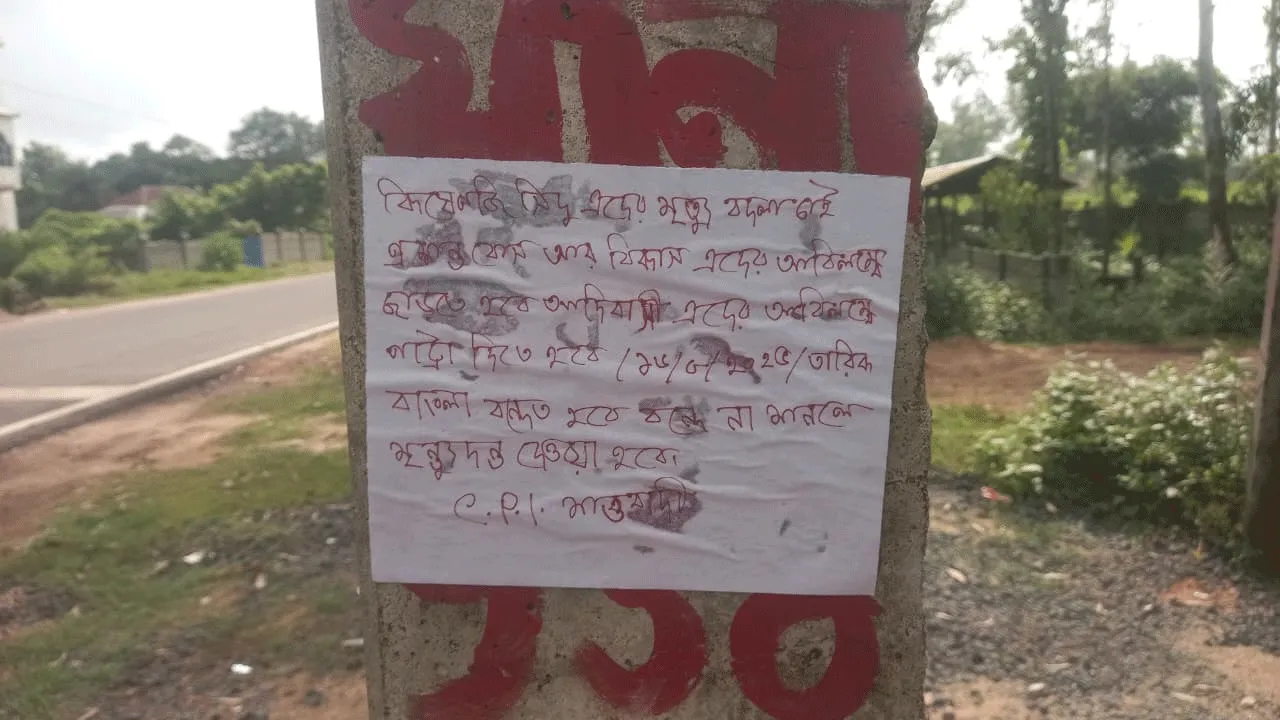 কিষেনজি সিদু এদের মৃত্যু বদলা চাই
প্রশান্ত বোস আর বিকাশ এদের অবিলম্বে
ছাড়তে হবে আদিবাসী এদের অবিলম্বে
পাট্টা দিতে হবে /১৫/৮/২০২৫/ তারিক
বাংলা বন্দত হবে বন্দে না মানলে
মৃত্যুদন্ড দেওয়া হবে
C.P.I. মাওবাদী
১০